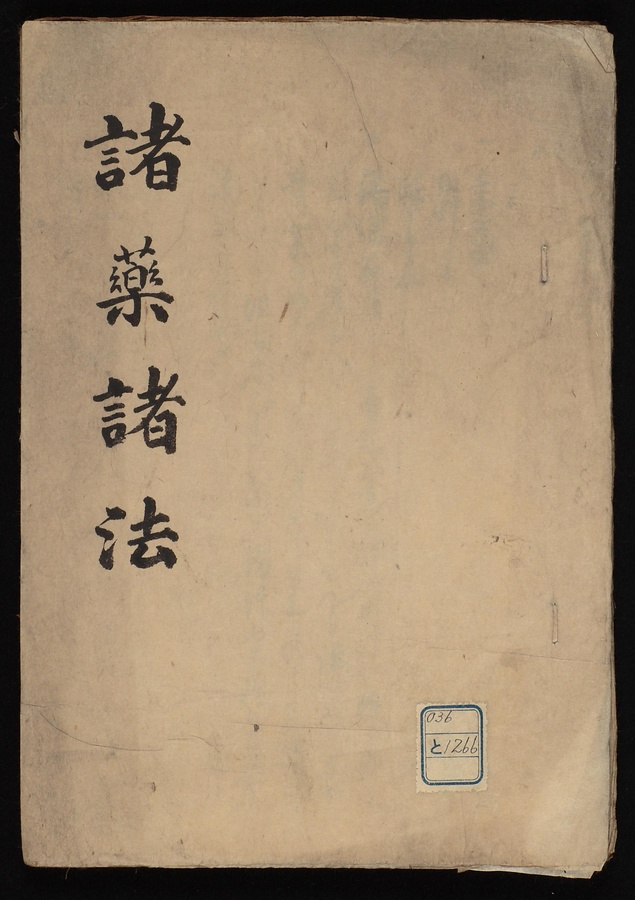 諸藥諸法
036
と1266